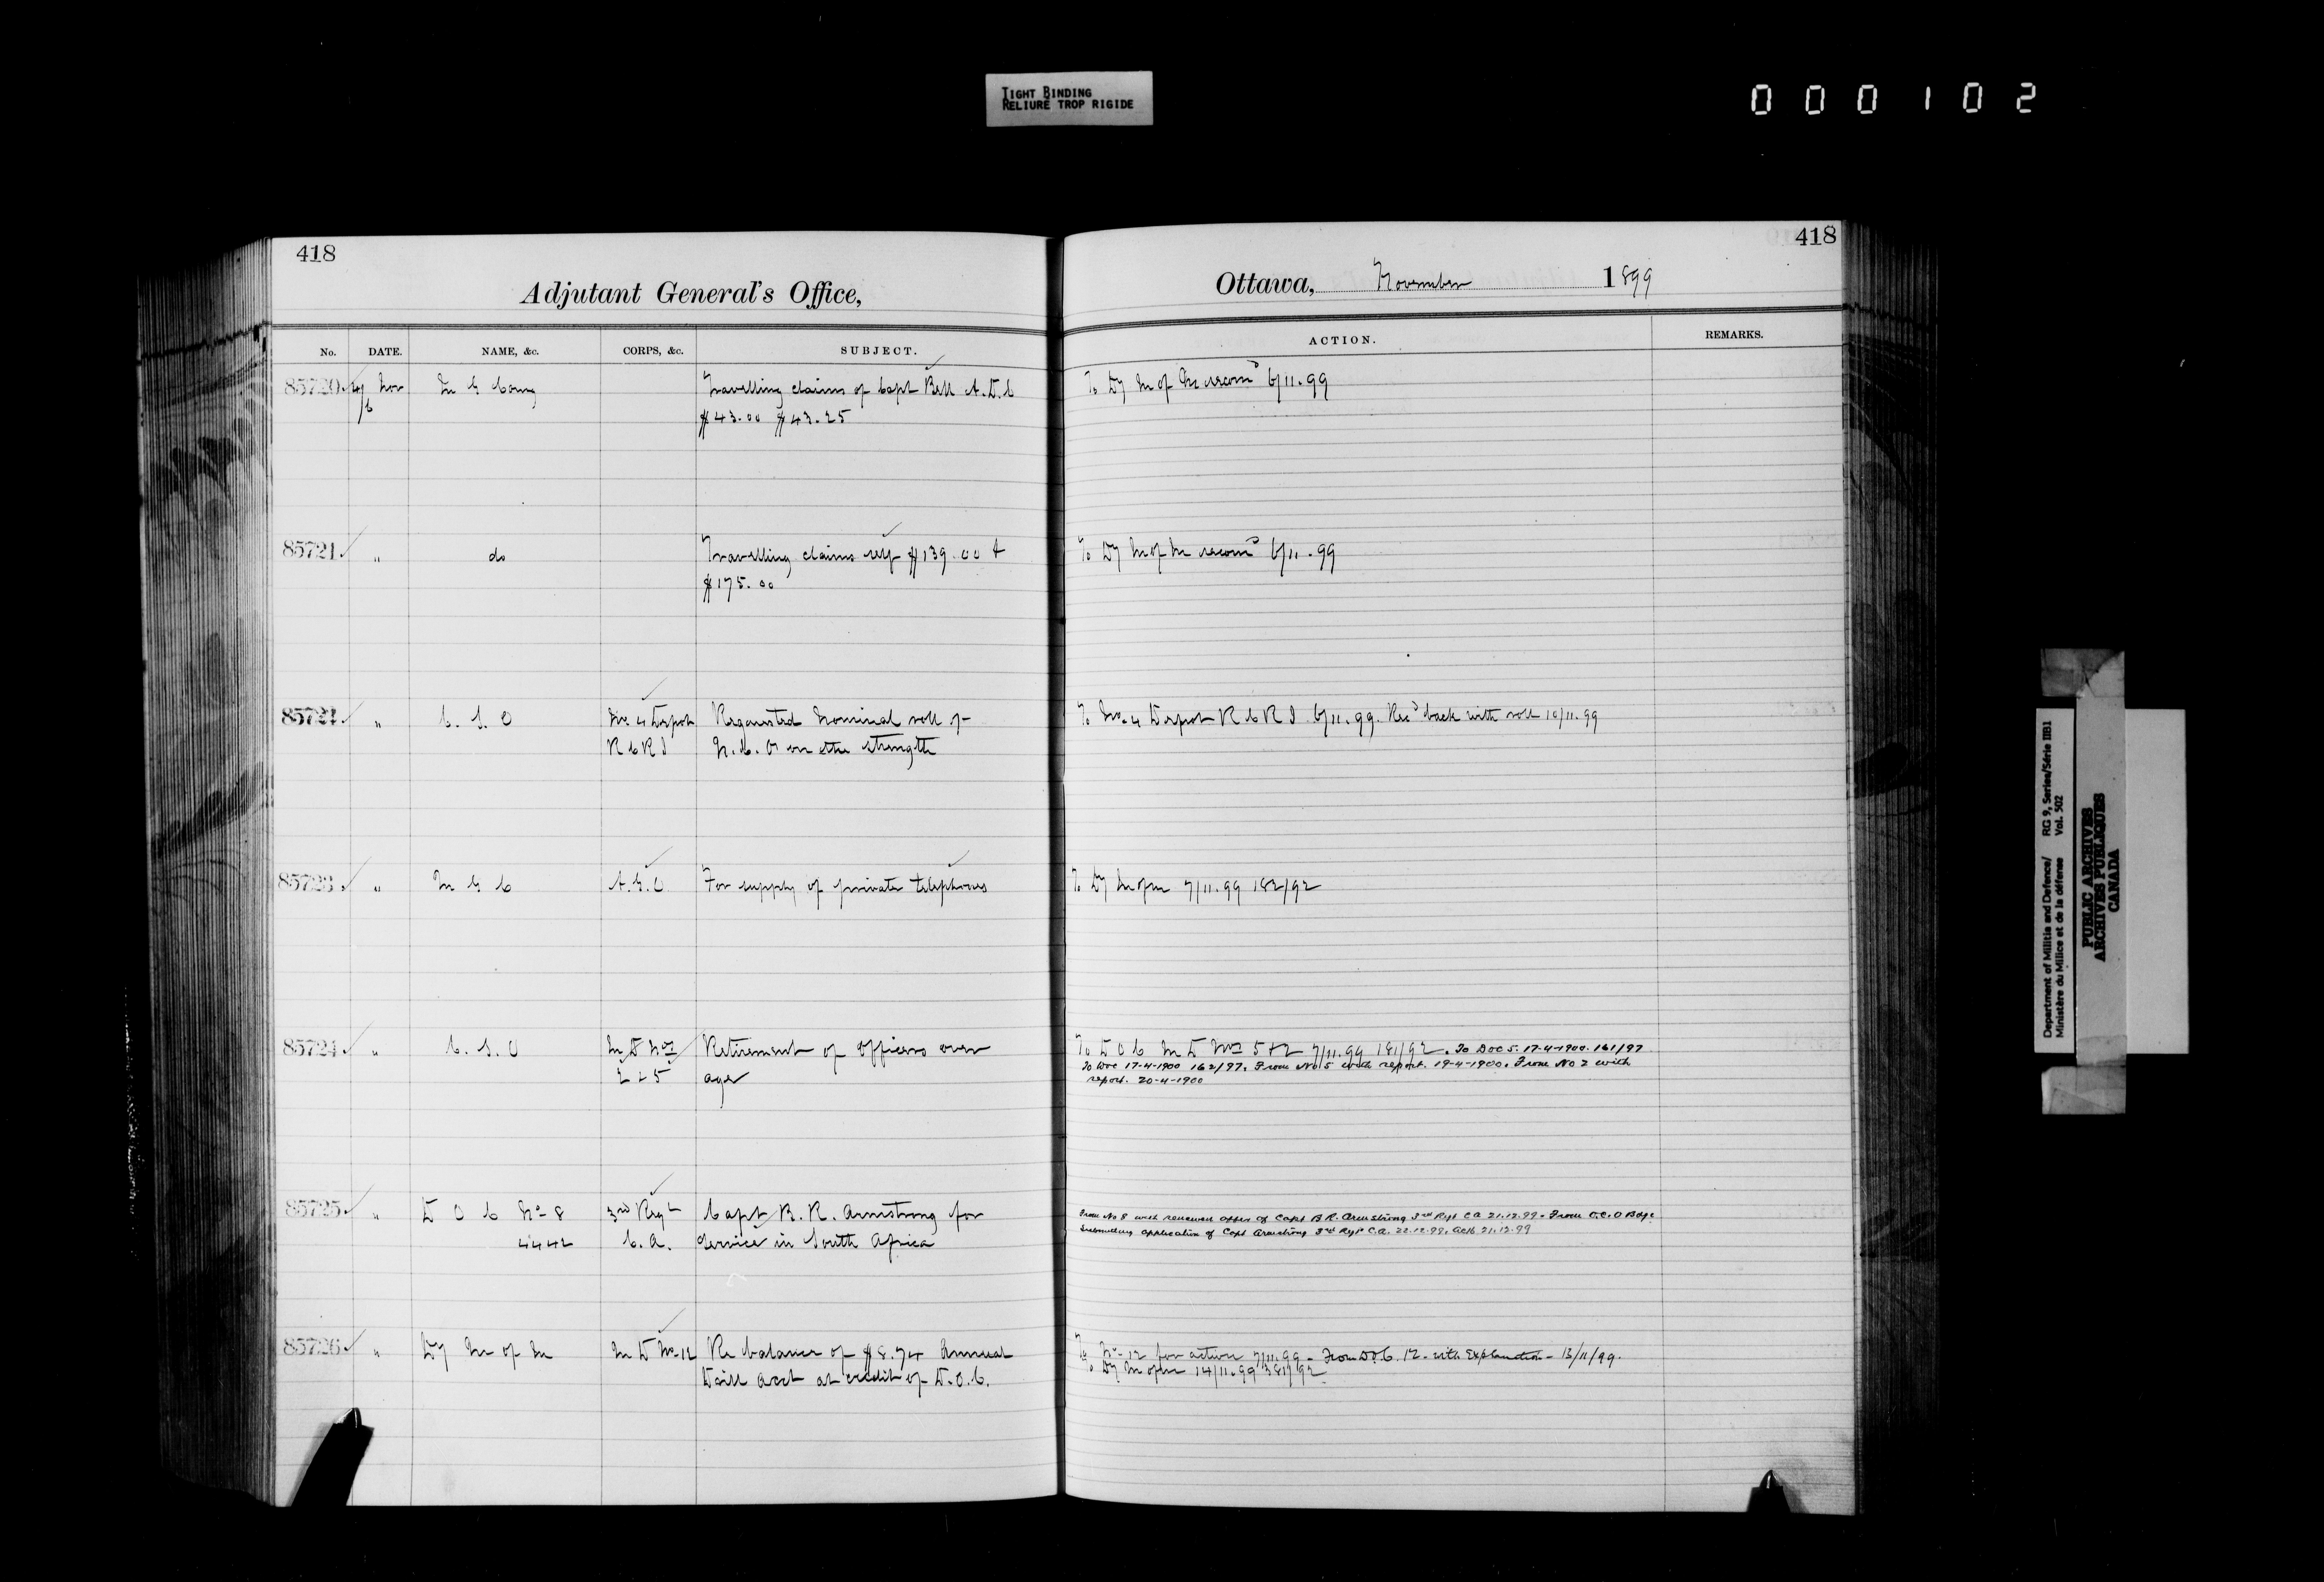 TIGHT BINDING
RELIURE TROP RIGIDE
000102
418
Adjutant General's Office,
No. DATE. NAME, &c. CORPS, &c. SUBJECT.
85720 Nov M G Comg Travelling claims of Capt Bell A.D.C
6 $43.00 $43.25
85721 " do Travelling claims $139.00 &
$175.00
" C. S. O No 4 Depot Requested Nominal roll of
R C R I N.C.O on the strength
85723 " M G C A.G.O For supply of private telephones
85724 " C. S. O M D Nos Retirement of Officers over
2 & 5 age
85725 " D O C No 8 3rd Regt Capt B. R. Armstrong for
4442 C.A. Service in South Africa
85726 " Dy M of M M D No 12 Re balance of $8.74 Annual
Drill Acct at credit of D.O.C.
418
Ottawa, November 1899
ACTION. REMARKS.
To Dy M of M recomd 6/11.99
To Dy M of M recomd 6/11.99
To No. 4 Depot R C R I 6/11.99. Recd back with roll 10/11.99
To Dy M of M 7/11.99 182/92
To D O C M D Nos 5 & 2 7/11.99 181/92. To DOC 5. 17-4-1900. 161/97
To DOC 17-4-1900 162/97. From No 5 with report. 19-4-1900. From No 2 with
report. 20-4-1900
From No 8 with renewed offer of Capt B R. Armstrong 3rd Regt C A 21.12.99. From O.C.O Bdge
submitting application of Capt Armstrong 3rd Regt C.A. 22.12.99. Ack 21.12.99
To No 12 for action 7/11.99 - From D.O.C. 12 - with Explanation - 13/11/99.
To Dy M of M 14/11.99 381/92
Department of Militia and Defence/ RG 9, Series/Série IIB1
Ministère du Milice et de la défense Vol. 502
PUBLIC ARCHIVES
ARCHIVES PUBLIQUES
CANADA